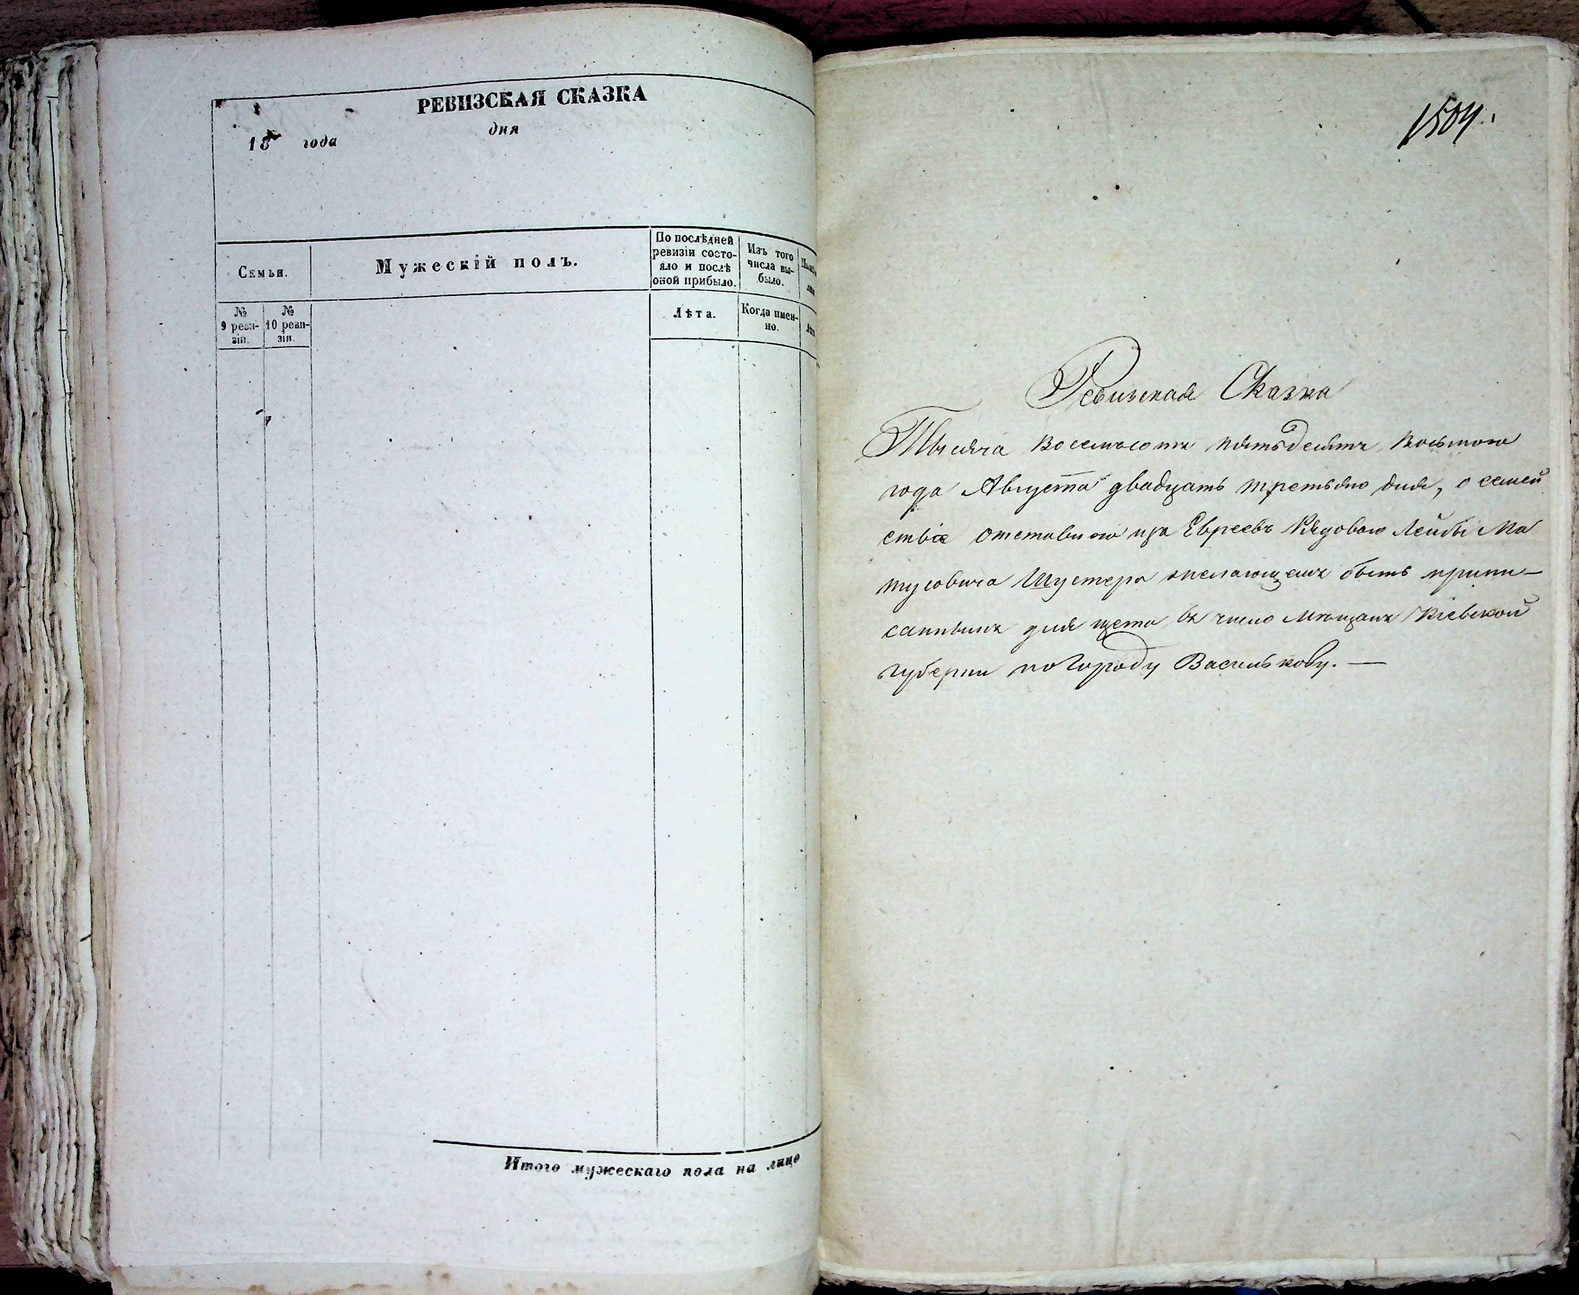 РЕВИЗСКАЯ СКАЗКА
18 года дня
Семьи.
Мужескій полъ.
По послѣдней
ревизіи состо-
яло и послѣ
оной прибыло.
Изъ того
числа вы-
было.
№
9 реви-
зіи.
№
10 реви-
зіи.
Лѣта.
Когда имен-
но.
Итого мужескаго пола на лицо
1504.
Ревизская Сказка
Тысяча восемьсотъ пятьдесятъ восьмого
года Августа двадцать третьяго дня, о семей
ствіе отставного изъ Евреевъ Рядового Лейбы Ма
тусовича Шустера желающемъ быть припи-
саннымъ для щета въ число мѣщанъ Кіевской
губерніи по Городу Василькову. —